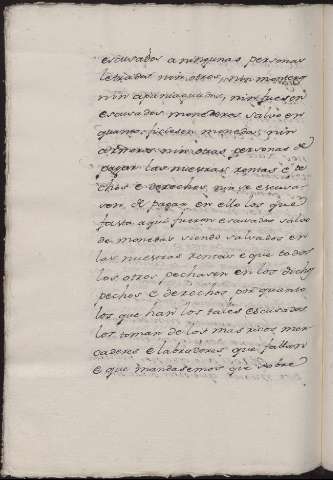 escusados a ningunas personas
letrados nin otros, nin monteros
nin apaniaguados, nin fuesen
escusados monederos salvo en
quanto ficiesen moneda, nin
nin otras personas de
pagar las nuestras rentas e pe
chos e derechos, nin se escusa
sen de pagar en ello los que
fasta aqui fueron escusados salvo
de monedas siendo salvados en
las nuestras rentas e que todos
los otros pechasen en los dichos
pechos e derechos por quanto
los que han los tales escusados
los toman de los mas ricos mer
caderes e labradores que fallan
e que mandasemos que sobre